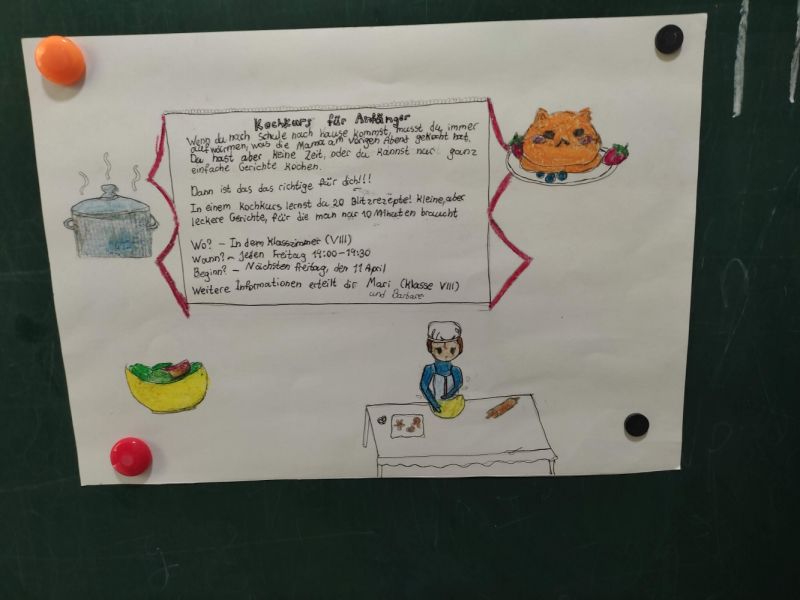 Kochkurs für Anfänger
Wenn du nach schule nach hause kommst, musst du immer
aufwärmen, was die Mama am vorigen Abend gekocht hat.
Du hast aber keine Zeit, oder du kannst nur ganz
einfache Gerichte kochen.
Dann ist das das richtige für dich!!!
In einem Kochkurs lernst du 20 Blitzrezepte! kleine, aber
leckere Gerichte, für die man nur 10 Minuten braucht
Wo? - In dem Klasszimmer (VIII)
Wann? - Jeden Freitag 19:00-19:30
Beginn? - Nächsten Freitag, den 11 April
Weitere Informationen erteilt dir Mari (Klasse VIII)
und Barbare